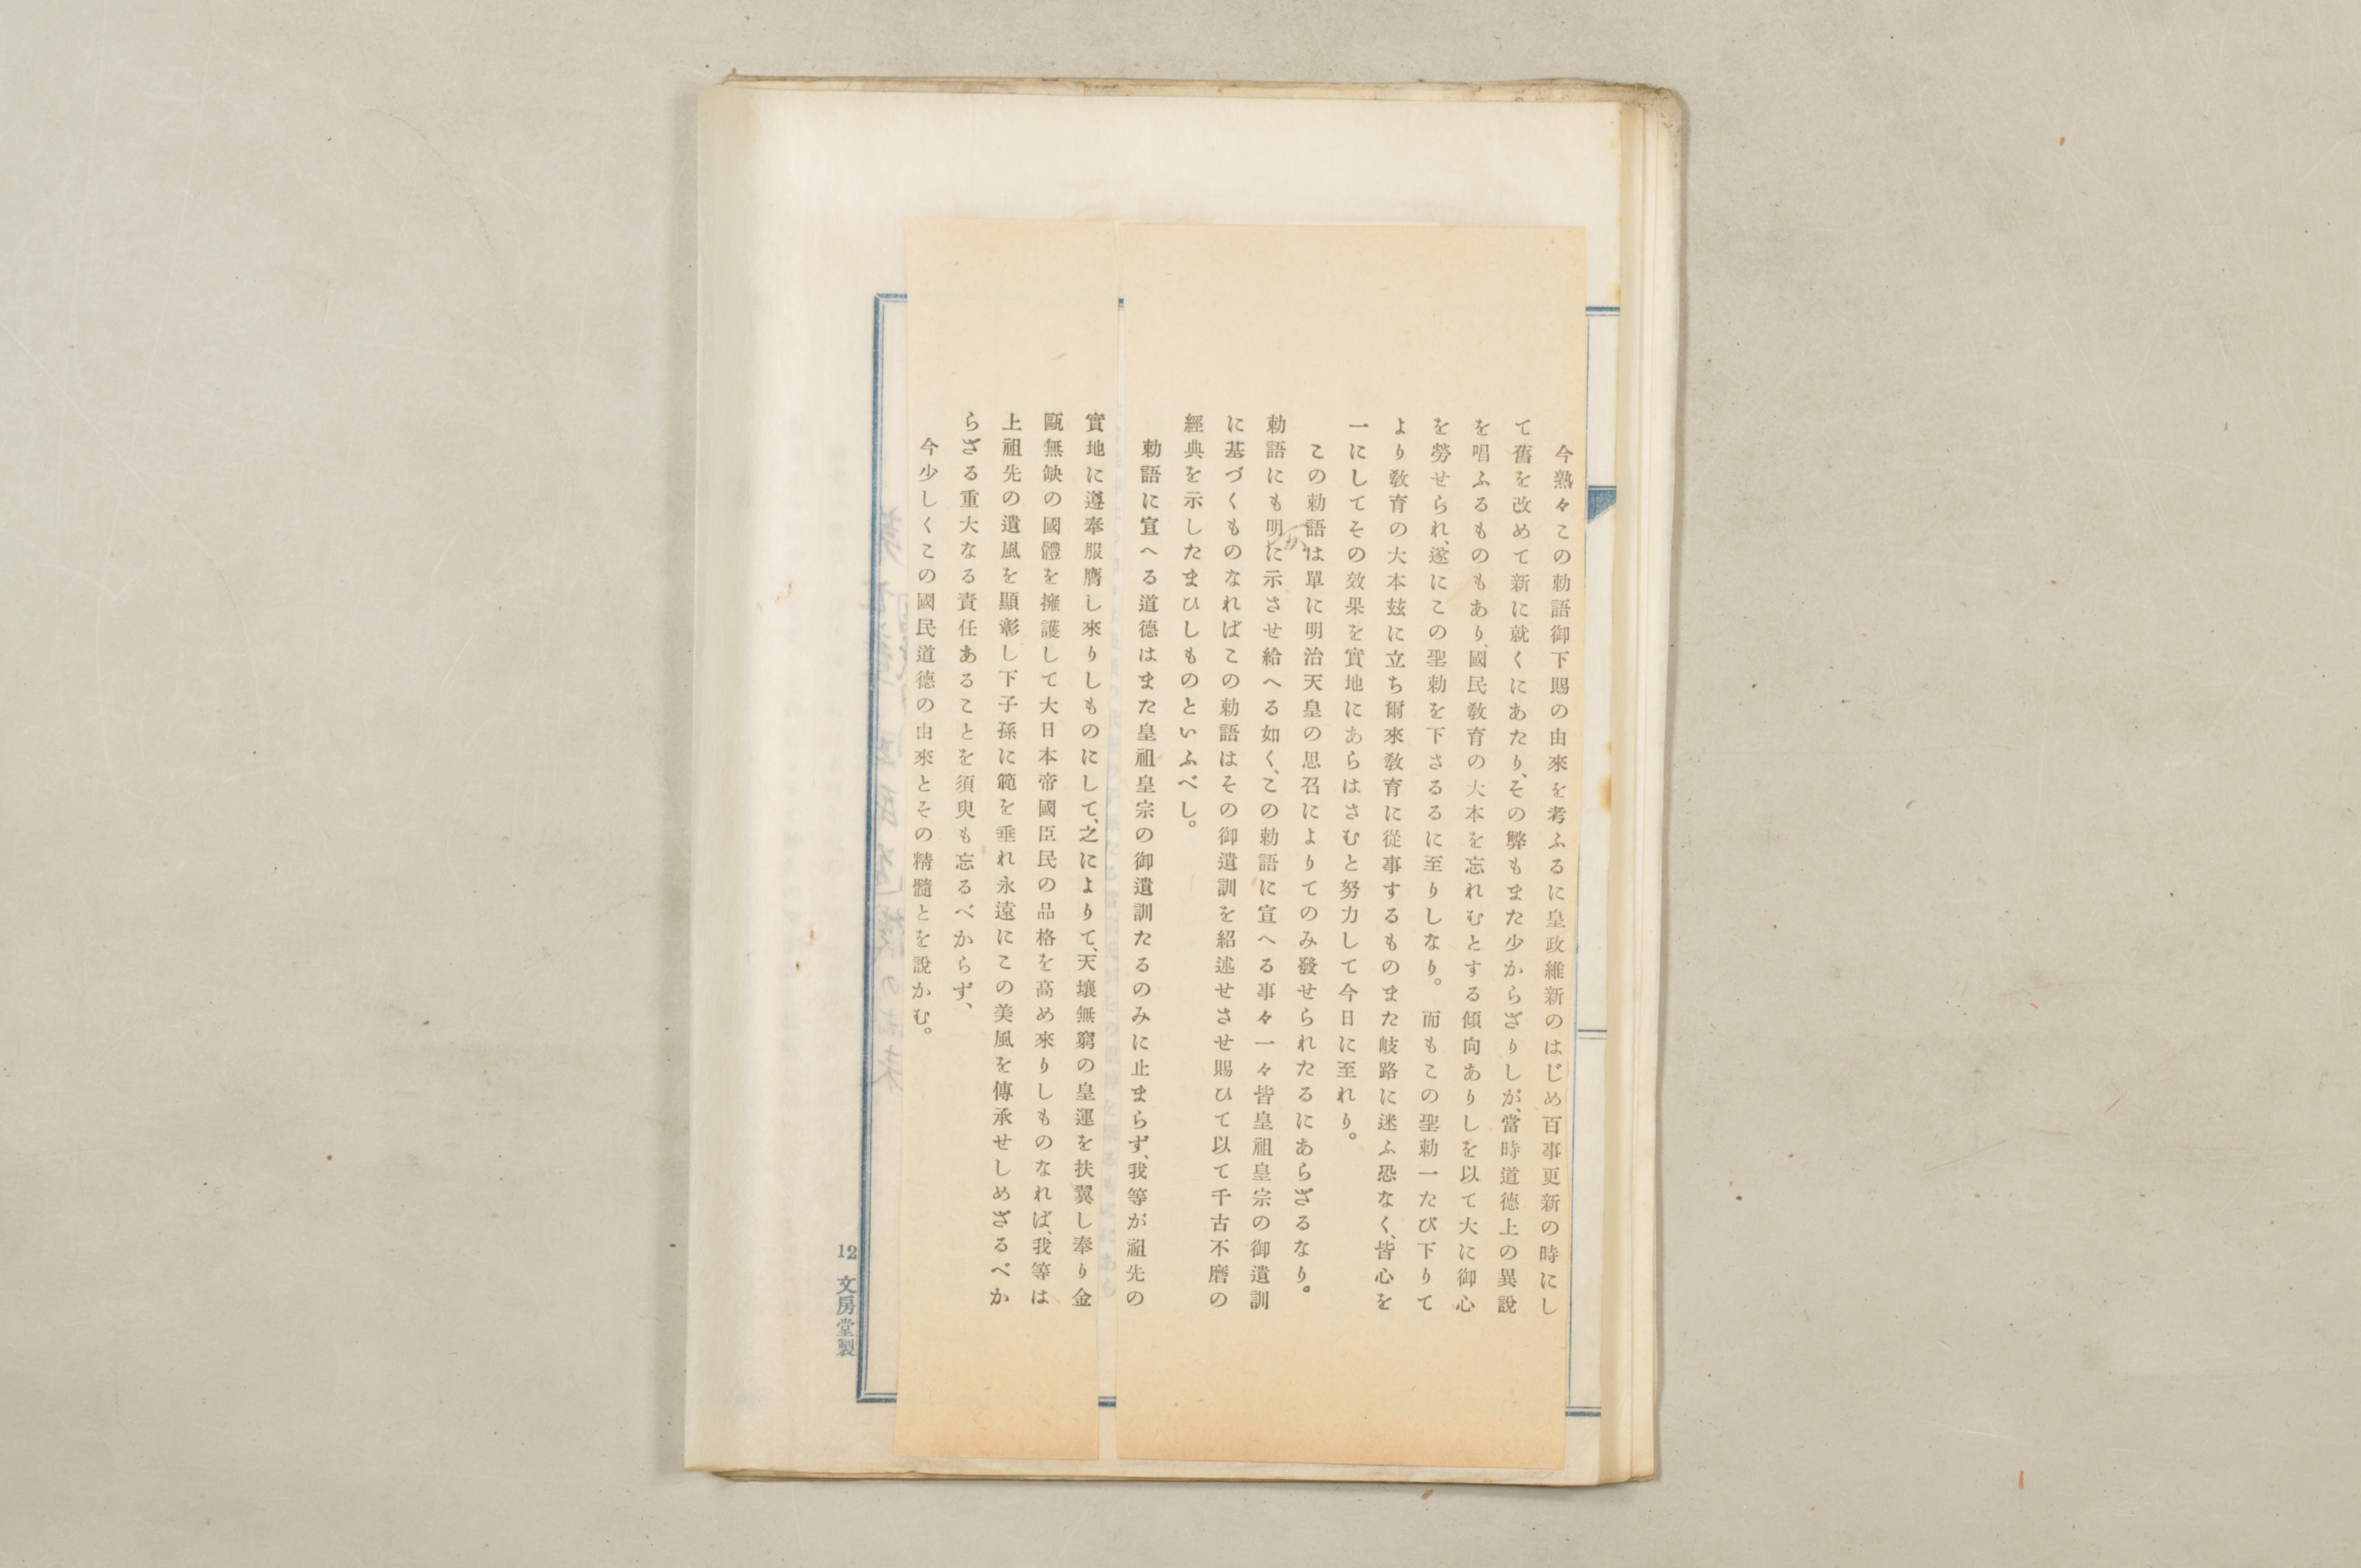 今熟々この勅語御下賜の由來を考ふるに皇政維新のはじめ百事更新の時にし
て舊を改めて新に就くにあたり、その弊もまた少からざりしが、當時道德上の異說
を唱ふるものもあり、國民敎育の大本を忘れむとする傾向ありしを以て大に御心
を勞せられ、遂にこの聖勅を下さるるに至りしなり。而もこの聖勅一たび下りて
より敎育の大本玆に立ち爾來敎育に從事するものまた岐路に迷ふ恐なく、皆心を
一にしてその效果を實地にあらはさむと努力して今日に至れり。
この勅語は單に明治天皇の思召によりてのみ發せられたるにあらざるなり。
勅語にも明に示させ給へる如く、この勅語に宣へる事々一々皆皇祖皇宗の御遺訓
か
に基づくものなればこの勅語はその御遺訓を紹述せさせ賜ひて以て千古不磨の
經典を示したまひしものといふべし。
勅語に宣へる道德はまた皇祖皇宗の御遺訓たるのみに止まらず、我等が祖先の
實地に遵奉服膺し來りしものにして、之によりて、天壤無窮の皇運を扶翼し奉り金
甌無缺の國體を擁護して大日本帝國臣民の品格を高め來りしものなれば、我等は
上祖先の遺風を顯彰し下子孫に範を垂れ永遠にこの美風を傳承せしめざるべか
らざる重大なる責任あることを須臾も忘るべからず、
今少しくこの國民道德の由來とその精髓とを說かむ。
12 文房堂製